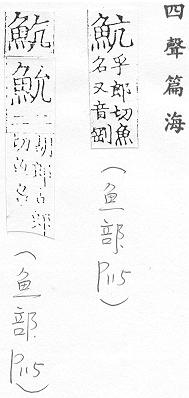 四聲篇海
魧乎郎切魚
名又音剛
(魚部.P115)
胡郎古郎
切魚名
(魚部.P115)